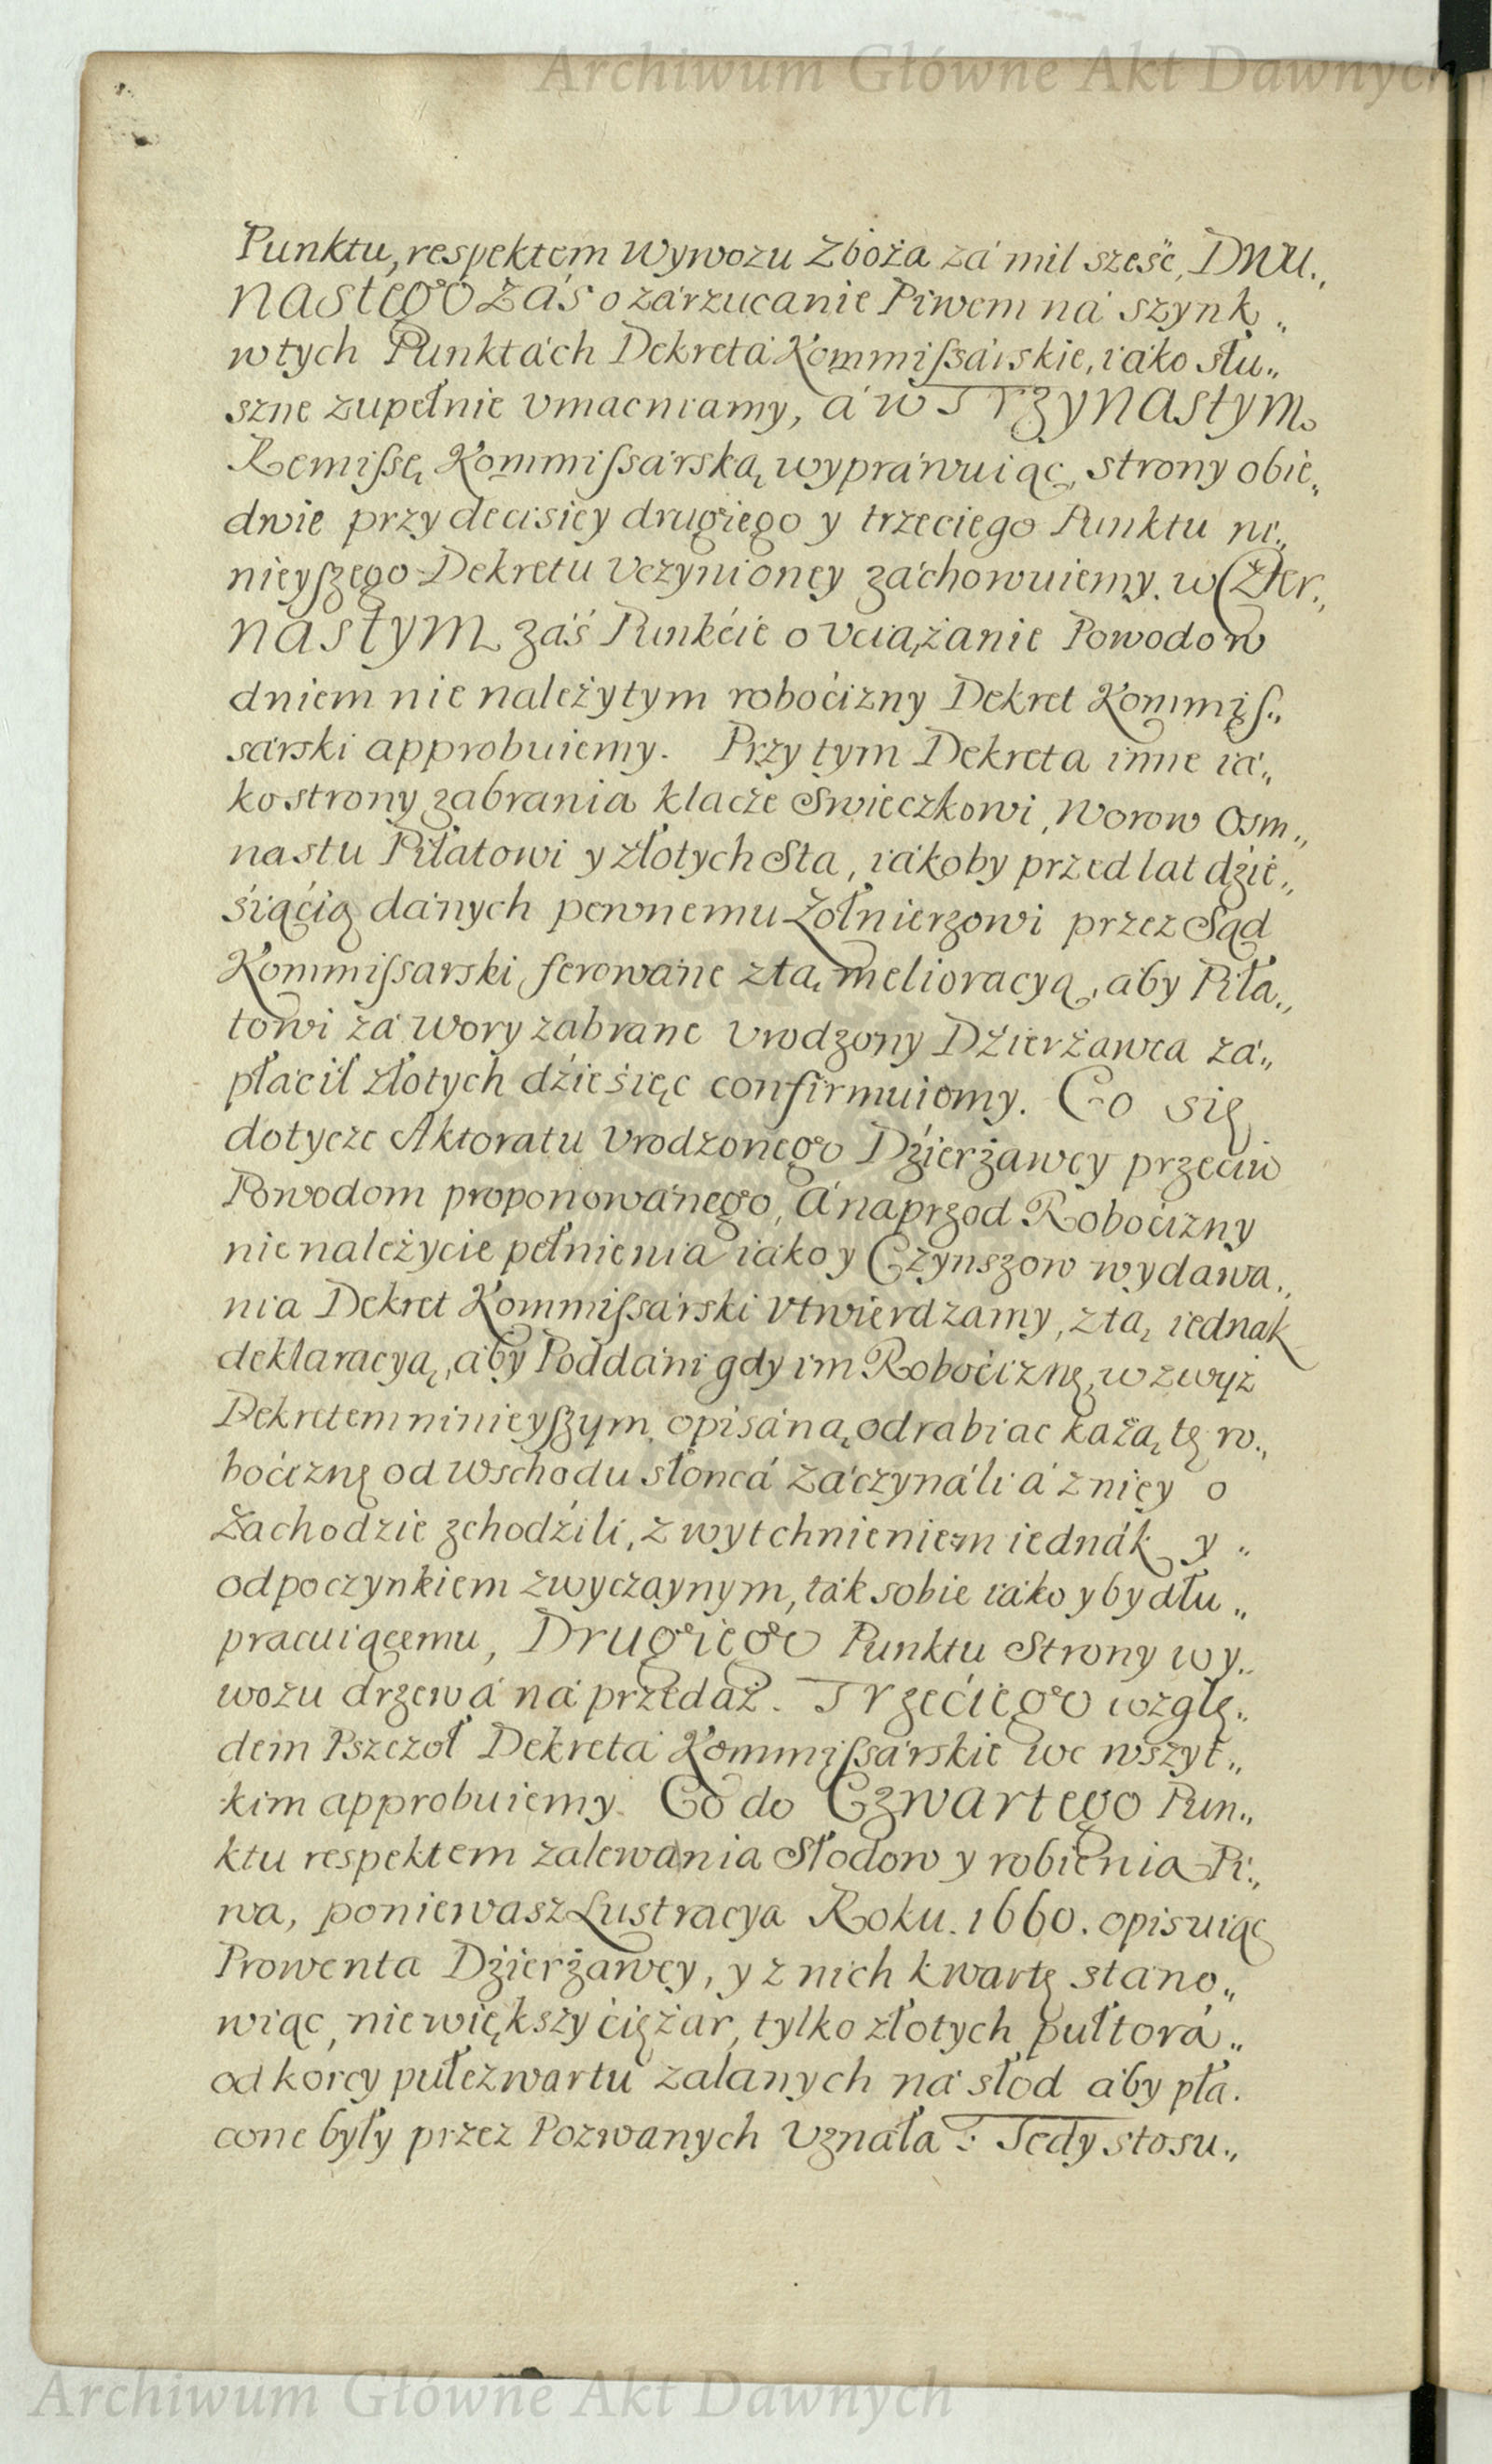 Archiwum Główne Akt Dawnych
Punktu, respektem Wywozu Zboża zá mil sześć, DWU„
nastego záś o zárzucánie Piwem ná szynk„
w tych Punktách Dekretá Kommiſsárskie, iáko słu„
szne zupełnie vmacniamy, á w Trzynastym
Remiſsę Kommiſsárską wypráwuiąc, strony obie„
dwie przy decisiey drugiego y trzeciego Punktu ni„
nieyſzego Dekretu Vczynioney záchowuiemy. w Czter„
nastym záś Punkćie o Vciążánie Powodow
dniem nie należytym roboćizny Dekret Kommiſ„
sárski approbuiemy. Przy tym Dekreta inne iá„
ko strony zabránia klacze Swieczkowi, Worow Osm„
nastu Piłatowi y złotych Sta, iákoby przed lat dźie„
śiąćią dánych pewnemu Żołnierzowi przez Sąd
Kommiſsarski ferowáne z tą melioracyą, áby Piła„
towi zá Wory zabrane Vrodzony Dźierżawca zá„
płaćił złotych dźieśięc confirmuiemy. Co się
dotycze Aktoratu Vrodzonego Dźierżawcy przeciw
Powodom proponowánego, á naprzod Roboćizny
nie należycie pełnienia iáko y Czynszow wydawa„
nia Dekret Kommiſsárski Vtwierdzamy, z tą iednak
deklaracyą, áby Poddáni gdy im Roboćiznę wzwyż
Dekretem ninieyſzym opisáną odrabiac każą, tę ro„
boćiznę od Wschodu słońcá záczynáli á z niey o
Zachodzie zchodźili, z wytchnieniem iednák y„
odpoczynkiem zwyczaynym, ták sobie iáko y bydłu„
pracuiącemu, Drugiego Punktu Strony wy„
wozu drzewá ná przedaż. Trzećiego wzglę„
dem Pszczoł Dekretá Kommiſsárskie we wszyt„
kim approbuiemy. Co do Czwartego Pun„
ktu respektem zalewania Słodow y robienia Pi„
wa, ponieważ Lustracya Roku. 1660. opisuiąc
Prowenta Dźierżawcy, y z nich kwartę stáno„
wiąc, nie większy ćiężar, tylko złotych pułtorá„
od korcy pułczwartu zalanych ná słod áby pła„
cone były przez Pozwanych Vznáła: Tedy stosu„
Archiwum Główne Akt Dawnych